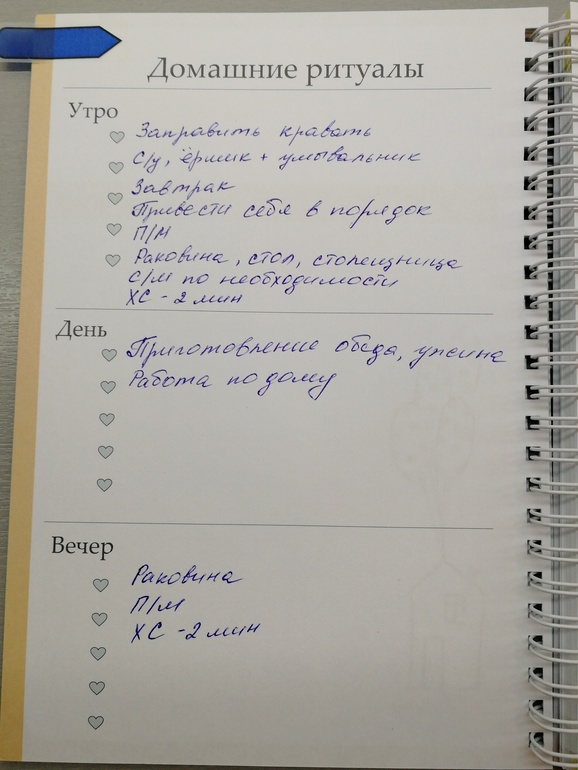 Домашние ритуалы
Утро
Заправить кравать
С/у, ёршик + умывальник
Завтрак
Привести себя в порядок
П/М
Раковина, стол, столещница
С/М по необходимости
ХС - 2 мин
День
Приготовление обеда, ужина
Работа по дому
Вечер
Раковина
П/М
ХС - 2 мин